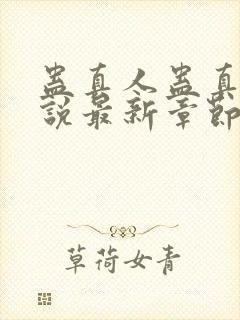 蛊真人蛊真
說最新章節
草荷女青